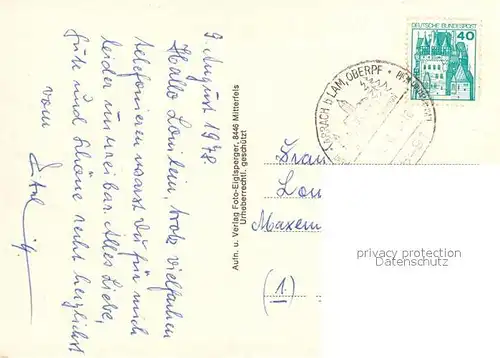 9 August 1978.
Hallo Lonilein, trotz vielfachem
telefonieren warst Du für mich
leider unerreichbar. Alles Liebe,
Gute und Schöne recht herzlichst
vom
Aufn. u. Verlag Foto-Eiglsperger, 8446 Mitterfels
Urheberrechtl. geschützt
DEUTSCHE BUNDESPOST
40
b LAM, OBERPF
Frau
Lon
Maxem
(1.)
privacy protection
Datenschutz